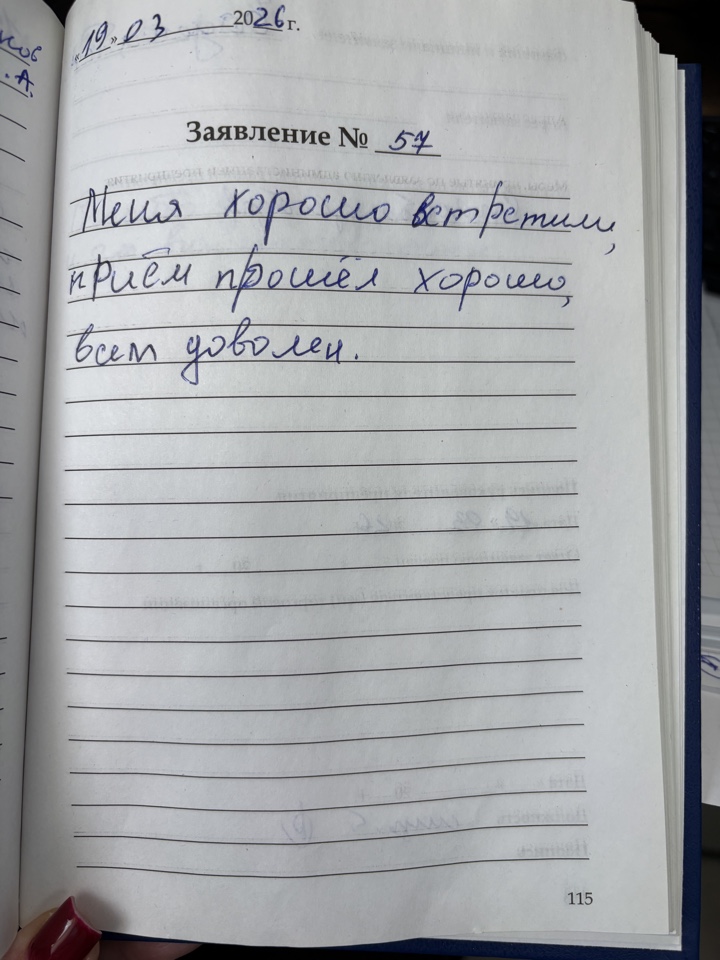 ков
. А.
«19» 03 2026 г.
Заявление № 57
Меня хорошо встретили,
приём прошёл хорошо,
всем доволен.
115